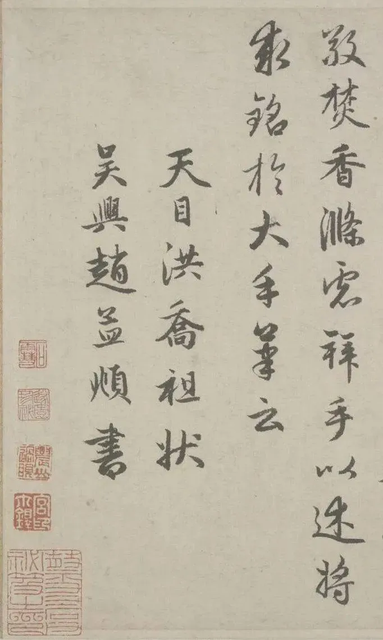 敬焚香滌慮拜手以述將
求銘於大手筆云
天目洪喬祖狀
吳興趙孟頫書